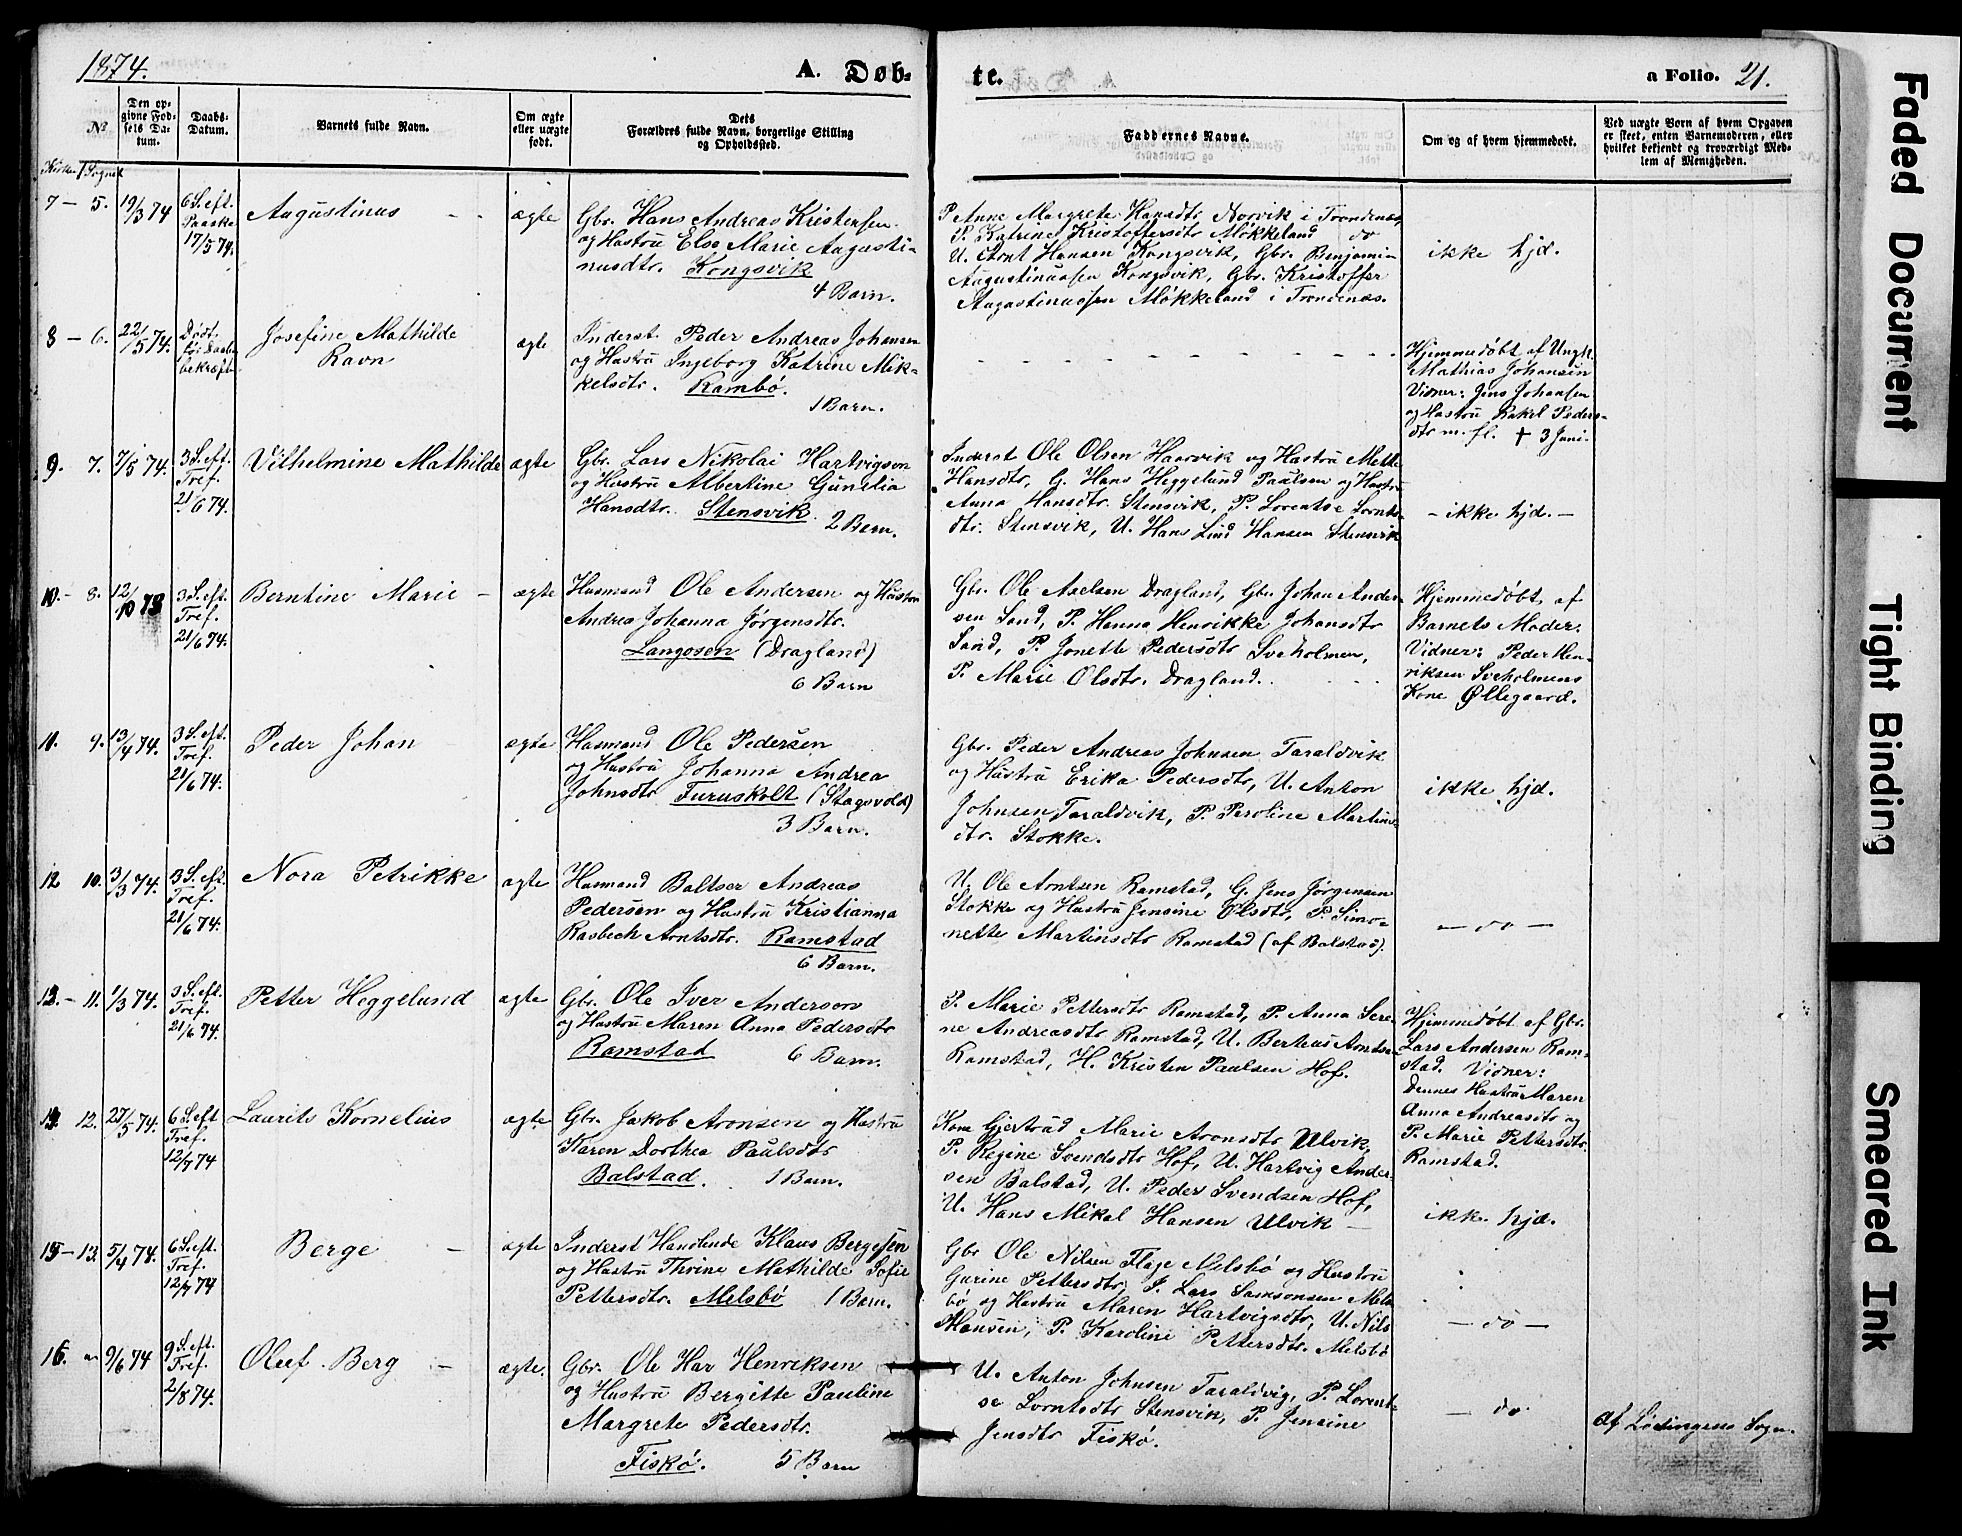 1874.
A. Døb-
te.
a Folio. 21.
№
Den op-
givne Fød-
sels Da-
tum.
Daabs-
Datum.
Barnets fulde Navn.
Om ægte
eller uægte
født.
Dets
Forældres fulde Navn, borgerlige Stilling
og Opholdssted.
Faddernes Navne.
Om og af hvem hjemmedøbt.
Ved uægte Børn af hvem Opgaven
er skeet, enten Barnemoderen, eller
hvilket bekjendt og troværdigt Med-
lem af Menigheden.
7 - 5.
19/3 74
6 S. eft.
Paaske
17/5 74.
Augustinus
ægte
Gbr. Hans Andreas Kristensen
og Hustru Else Marie Augusti-
nusdtr. Kongsvik
4 Barn.
P. Anne Margrete Hansdtr. Norvik i Trondenæs,
P. Katrine Kristoffersdtr Møkkeland do
U. Arnt Hansen Kongsvik, Gbr. Benjamin
Augustinussen Kongsvik, Gbr. Kristoffer
Augustinussen Møkkeland i Trondenæs.
ikke hjd.
8 - 6.
22/5 74.
Død f.
før Daabs
bekræft.
Josefine Mathilde
Ravn
ægte
Inderst. Peder Andreas Johansen
og Hustru Ingeborg Katrine Mik-
kelsdtr. Rambø.
1 Barn.
Hjemmedøbt af Ungk.
Mathias Johansen
Vidner: Jens Johansen
og Hustru Rakel Peders-
dtr m. fl. † 3 Juni.
9. 7.
7/5 74.
3 S. eft.
Tref.
21/6 74.
Vilhelmine Mathilde
ægte
Gbr. Lars Nikolai Hartvigsen
og Hustru Albertine Gunelia
Hansdtr. Stensvik.
2 Barn.
Inderst Ole Olsen Haarvik og Hustru Mette
Hansdtr, G. Hans Heggelund Paulsen og Hustru
Anna Hansdtr. Stensvik, P. Lorentse Lornts-
dtr. Stensvik, U. Hans Lind Hansen Stensvik
- ikke hjd. -
10. - 8.
12/10 73
3 S. eft.
Tref.
21/6 74.
Berntine Marie -
ægte
Husmand Ole Andersen og Hustru
Andrea Johanna Jørgensdtr.
Langosen (Dragland)
6 Barn
Gbr. Ole Axelsen Dragland, Gbr. Johan Ander-
sen Sand, P. Hanna Henrikke Johansdtr
Sand, P. Jonette Pedersdtr Sveholmen,
P. Marie Olsdtr. Dragland.
Hjemmedøbt af
Barnets Moder.
Vidner: Peder Hen-
riksen Sveholmens
Kone Øllegaard.
11. 9.
13/4 74.
3 S. eft.
Tref.
21/6 74.
Peder Johan
ægte
Husmand Ole Pedersen
og Hustru Johanna Andrea
Johnsdtr Furuskolt (Stagsvold)
3 Barn.
Gbr. Peder Andreas Johnsen Taraldvik
og Hustru Erika Pedersdtr, U. Anton
Johnsen Taraldvik, P. Peroline Martins-
dtr. Stokke.
ikke hjd.
12 10.
3/3 74.
3 S. eft.
Tref.
21/6 74.
Nora Petrikke
ægte
Husmand Baltser Andreas
Pedersen og Hustru Kristianna
Rasbech Arntsdtr. Ramstad
6 Barn.
U. Ole Arntsen Ramstad, G. Jens Jørgensen
Stokke og Hustru Jensine Olsdtr, P. Simo-
nette Martinsdtr Ramstad (af Balstad).
- do -
13. - 11.
1/3 74.
3 S. eft.
Tref.
21/6 74.
Petter Heggelund
ægte
Gbr. Ole Iver Andersen
og Hustru Maren Anna Pedersdtr
Ramstad 6 Barn.
P. Marie Pettersdtr Ramstad, P. Anna Sere-
ne Andreasdtr Ramstad, U. Berteus Arntsen
Ramstad, H. Kristen Paulsen Hof.
Hjemmedøbt af Gbr.
Lars Andersen Ram-
stad. Vidner:
Dennes Hustru Maren
Anna Andreasdtr og
P. Marie Pettersdtr.
Ramstad.
12.
27/5 74.
6 S. eft
Tref.
12/7 74
Laurits Kornelius
ægte
Gbr. Jakob Aronsen og Hustru
Karen Dorthea Paulsdtr
Balstad. 1 Barn.
Kone Gjertrud Marie Aronsdtr Ulvik,
P. Regine Svendsdtr Hof, U. Hartvig Ander-
sen Balstad, U. Peder Svendsen Hof,
U. Hans Mikal Hansen Ulvik -
ikke hjd.
15 - 13.
5/4 74.
6 S. eft.
Tref.
12/7 74
Berge -
ægte
Inderst Handlende Klaus Bergesen
og Hustru Thrine Mathilde Sofie
Pettersdtr. Melsbø 1 Barn.
Gbr Ole Nilsen Flage Melsbø og Hustru
Gurine Pettersdtr, I. Lars Samsonsen Mels-
bø og Hustru Maren Hartvigsdtr, U. Nils
Hansen, P. Karoline Pettersdtr. Melsbø
- do -
16.
9/6 74
9 S. eft.
Tref.
2/8 74.
Oluf Berg -
ægte.
Gbr. Ole Har Henriksen
og Hustru Bergitte Pauline
Margrete Pedersdtr.
Fiskø. 5 Barn
U. Anton Johnsen Taraldvig, P. Lorent-
se Lorntsdtr Stensvik, P. Jensine
Jensdtr Fiskø.
- do
Af Lødingens Sogn.
Faded Document
Tight Binding
Smeared Ink